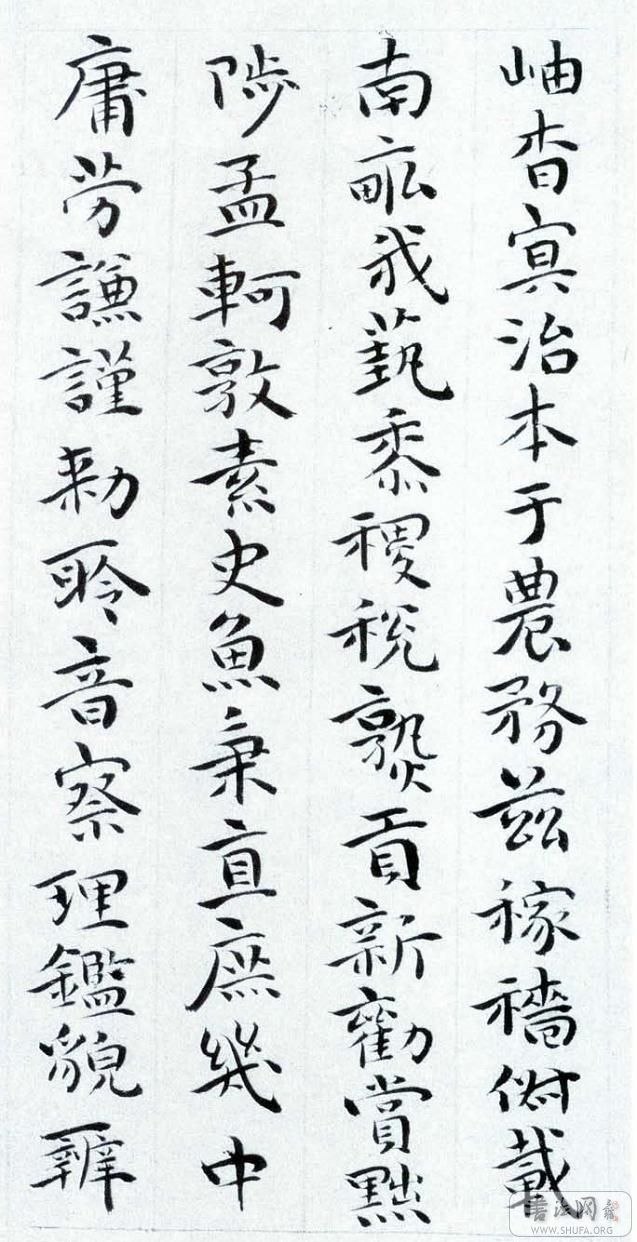 岫杳冥治本于農務茲稼穡俶載
南畝我藝黍稷稅熟貢新勸賞黜
陟孟軻敦素史魚秉直庶幾中
庸勞謙謹勅聆音察理鑑貌辨
書法网
WWW.SHUFA.ORG